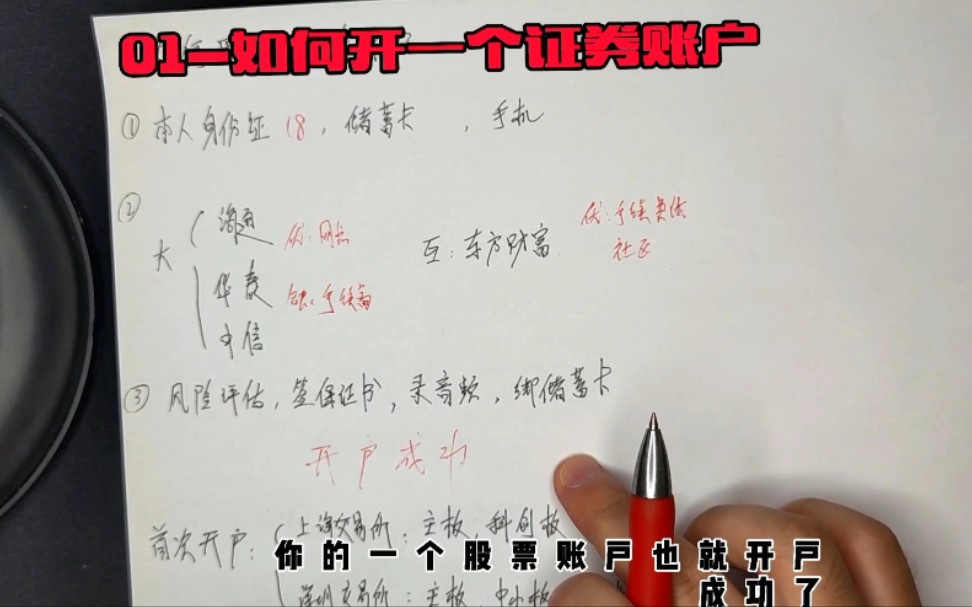 01-如何开一个证券账户
① 本人身份证 18, 储蓄卡 , 手机
②
大
海通 优:网点
华泰 缺:手续高
中信
互:东方财富
优:手续费低
社区
③ 风险评估, 签保证书, 录音频, 绑储蓄卡
开户成功
首次开户:
上海交易所:主板, 科创板
深圳交易所:主板, 中小板
你的一个股票账户也就开户
成功了